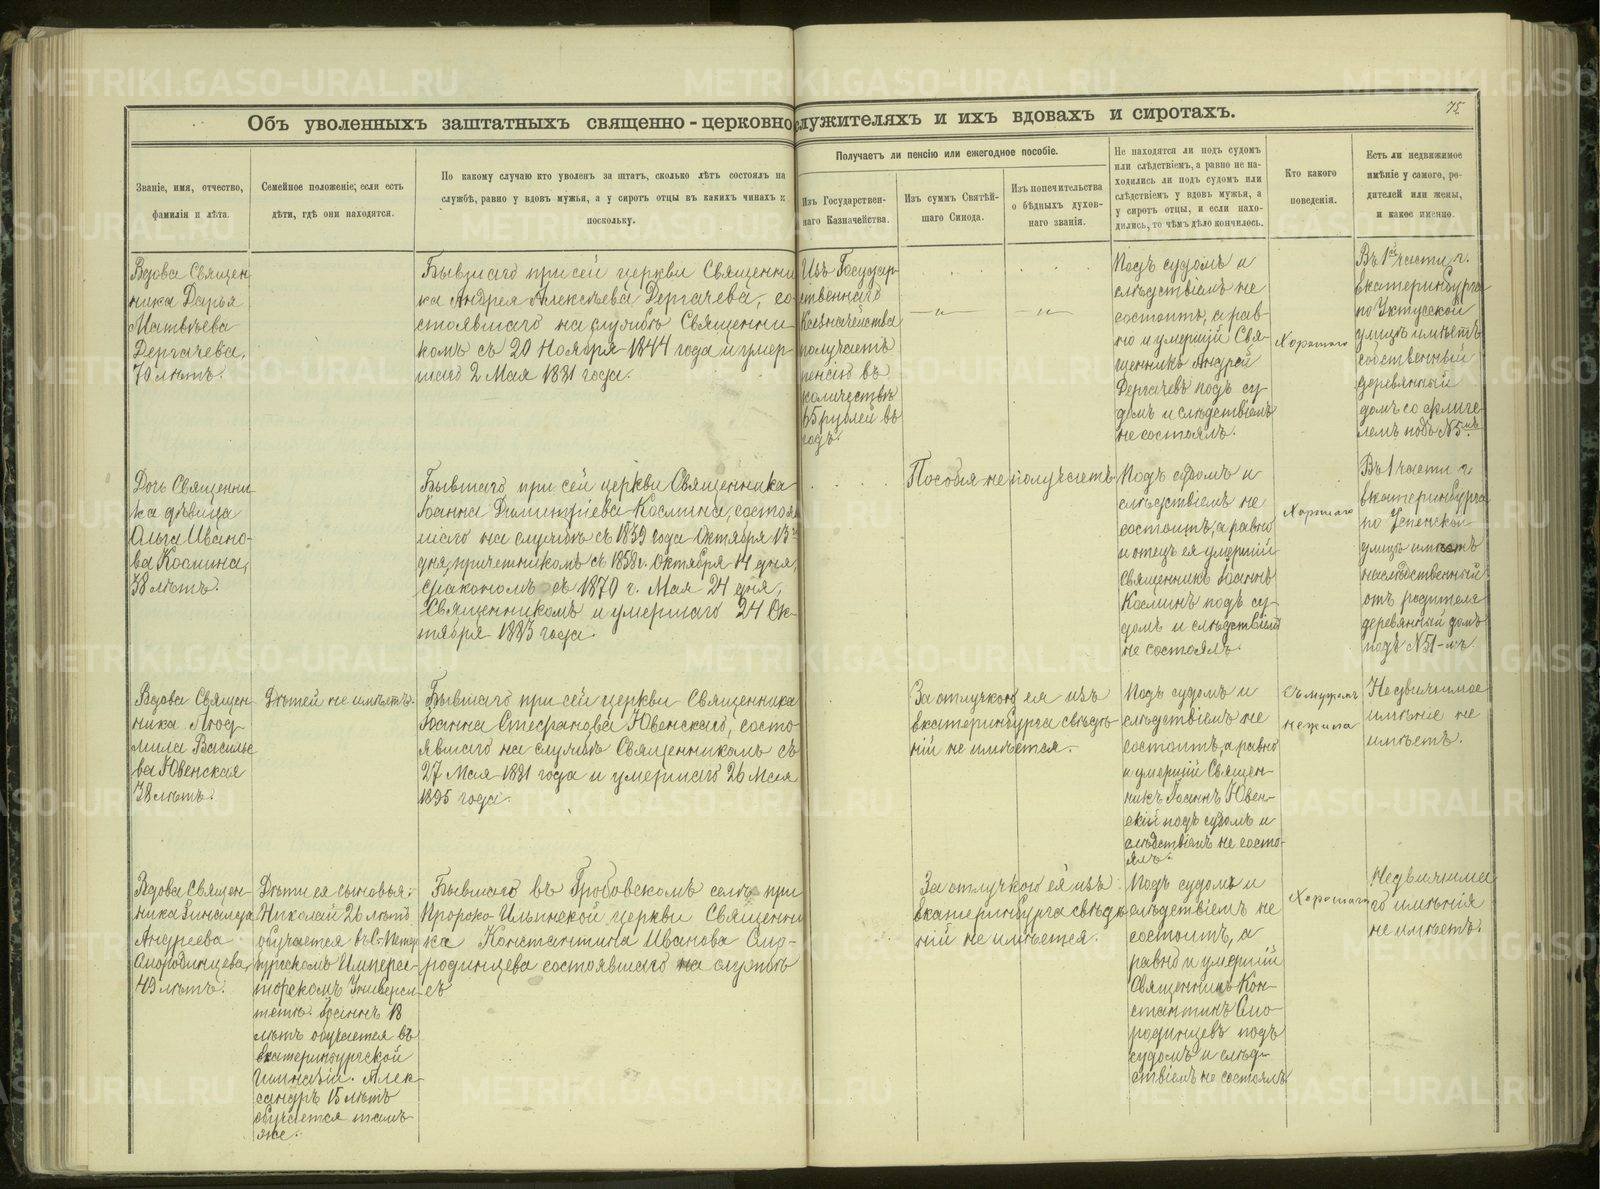 75
Объ уволенныхъ заштатныхъ священно-церковнослужителяхъ и ихъ вдовахъ и сиротахъ.
Званіе, имя, отчество,
фамилія и лѣта.
Семейное положеніе; если есть
дѣти, гдѣ они находятся.
По какому случаю кто уволенъ за штатъ, сколько лѣтъ состоялъ на
службѣ, равно у вдовъ мужья, а у сиротъ отцы въ какихъ чинахъ и
поскольку.
Получаетъ ли пенсію или ежегодное пособіе.
Изъ Государствен-
наго Казначейства.
Изъ суммъ Святѣй-
шаго Синода.
Изъ попечительства
о бѣдныхъ духов-
наго званія.
Не находятся ли подъ судомъ
или слѣдствіемъ, а равно не на-
ходились ли подъ судомъ или
слѣдствіемъ у вдовъ мужья, а
у сиротъ отцы, и если нахо-
дились, то чѣмъ дѣло кончилось.
Кто какого
поведенія.
Есть ли недвижимое
имѣніе у самого, ро-
дителей или жены,
и какое именно.
Вдова Священ-
ника Дарья
Матвѣева
Дергачева,
70 лѣтъ.
Бывшаго при сей церкви Священни-
ка Андрея Алексѣева Дергачева, со-
стоявшаго на службѣ Священни-
комъ съ 20 Ноября 1844 года и умер-
шаго 2 Мая 1881 года.
Изъ Государ-
ственнаго
Казначейства
получаетъ
пенсію въ
количествѣ
65 рублей въ
годъ.
—„—
—„—
Подъ судомъ и
слѣдствіемъ не
состоитъ, а рав-
но и умершій Свя-
щенникъ Андрей
Дергачевъ подъ су-
домъ и слѣдствіемъ
не состоялъ.
Хорошаго
Въ 1й части г.
Екатеринбурга
по Уктусской
улицѣ имѣетъ
собственный
деревянный
домъ со флиге-
лемъ подъ №5мъ.
Дочь Священни-
ка дѣвица
Ольга Ивано-
ва Космина,
38 лѣтъ.
Бывшаго при сей церкви Священника
Іоанна Димитріева Космина, состояв-
шаго на службѣ съ 1839 года Октября 13го
дня, причетникомъ съ 1858 г. Октября 14 дня,
діакономъ съ 1870 г. Мая 24 дня,
Священникомъ и умершаго 24 Ок-
тября 1883 года.
Пособія не получаетъ
Подъ судомъ и
слѣдствіемъ не
состоитъ, а равно
и отецъ ея умершій
Священникъ Іоаннъ
Косминъ подъ су-
домъ и слѣдствіемъ
не состоялъ.
Хорошаго
Въ 1 части г.
Екатеринбурга
по Успенской
улицѣ имѣетъ
наслѣдственный
отъ родителя
деревянный домъ
подъ №51-мъ.
Вдова Священ-
ника Люд-
мила Василье-
ва Ювенская
38 лѣтъ.
Дѣтей не имѣетъ.
Бывшаго при сей церкви Священника
Іоанна Стефанова Ювенскаго, состо-
явшаго на службѣ Священникомъ съ
27 Мая 1881 года и умершаго 26 Мая
1895 года.
За отлучкою ея изъ
Екатеринбурга свѣдѣ-
ній не имѣется.
Подъ судомъ и
слѣдствіемъ не
состоитъ, а равно
и умершій Священ-
никъ Іоаннъ Ювен-
скій подъ судомъ и
слѣдствіемъ не состо-
ялъ.
Съ мужемъ
не жила
Недвижимое
имѣніе не
имѣетъ.
Вдова Священ-
ника
Андреева
Смородинцева,
49 лѣтъ.
Дѣти ея сыновья:
Николай 26 лѣтъ
обучается въ С.-Петер-
бургскомъ Импера-
торскомъ Универси-
тетѣ. Іоаннъ 18
лѣтъ обучается въ
Екатеринбургской
Гимназіи. Алек-
сандръ 15 лѣтъ
обучается тамъ
же.
Бывшаго въ Гробовскомъ селѣ при
Пророко-Ильинской церкви Священни-
ка Константина Иванова Смо-
родинцева состоявшаго на службѣ
съ
За отлучкою ея изъ
Екатеринбурга свѣдѣ-
ній не имѣется.
Подъ судомъ и
слѣдствіемъ не
состоитъ, а
равно и умершій
Священникъ Кон-
стантинъ Смо-
родинцевъ подъ
судомъ и слѣд-
ствіемъ не состоялъ
Хорошаго
Недвижима-
го имѣнія
не имѣетъ.
METRIKI.GASO-URAL.RU